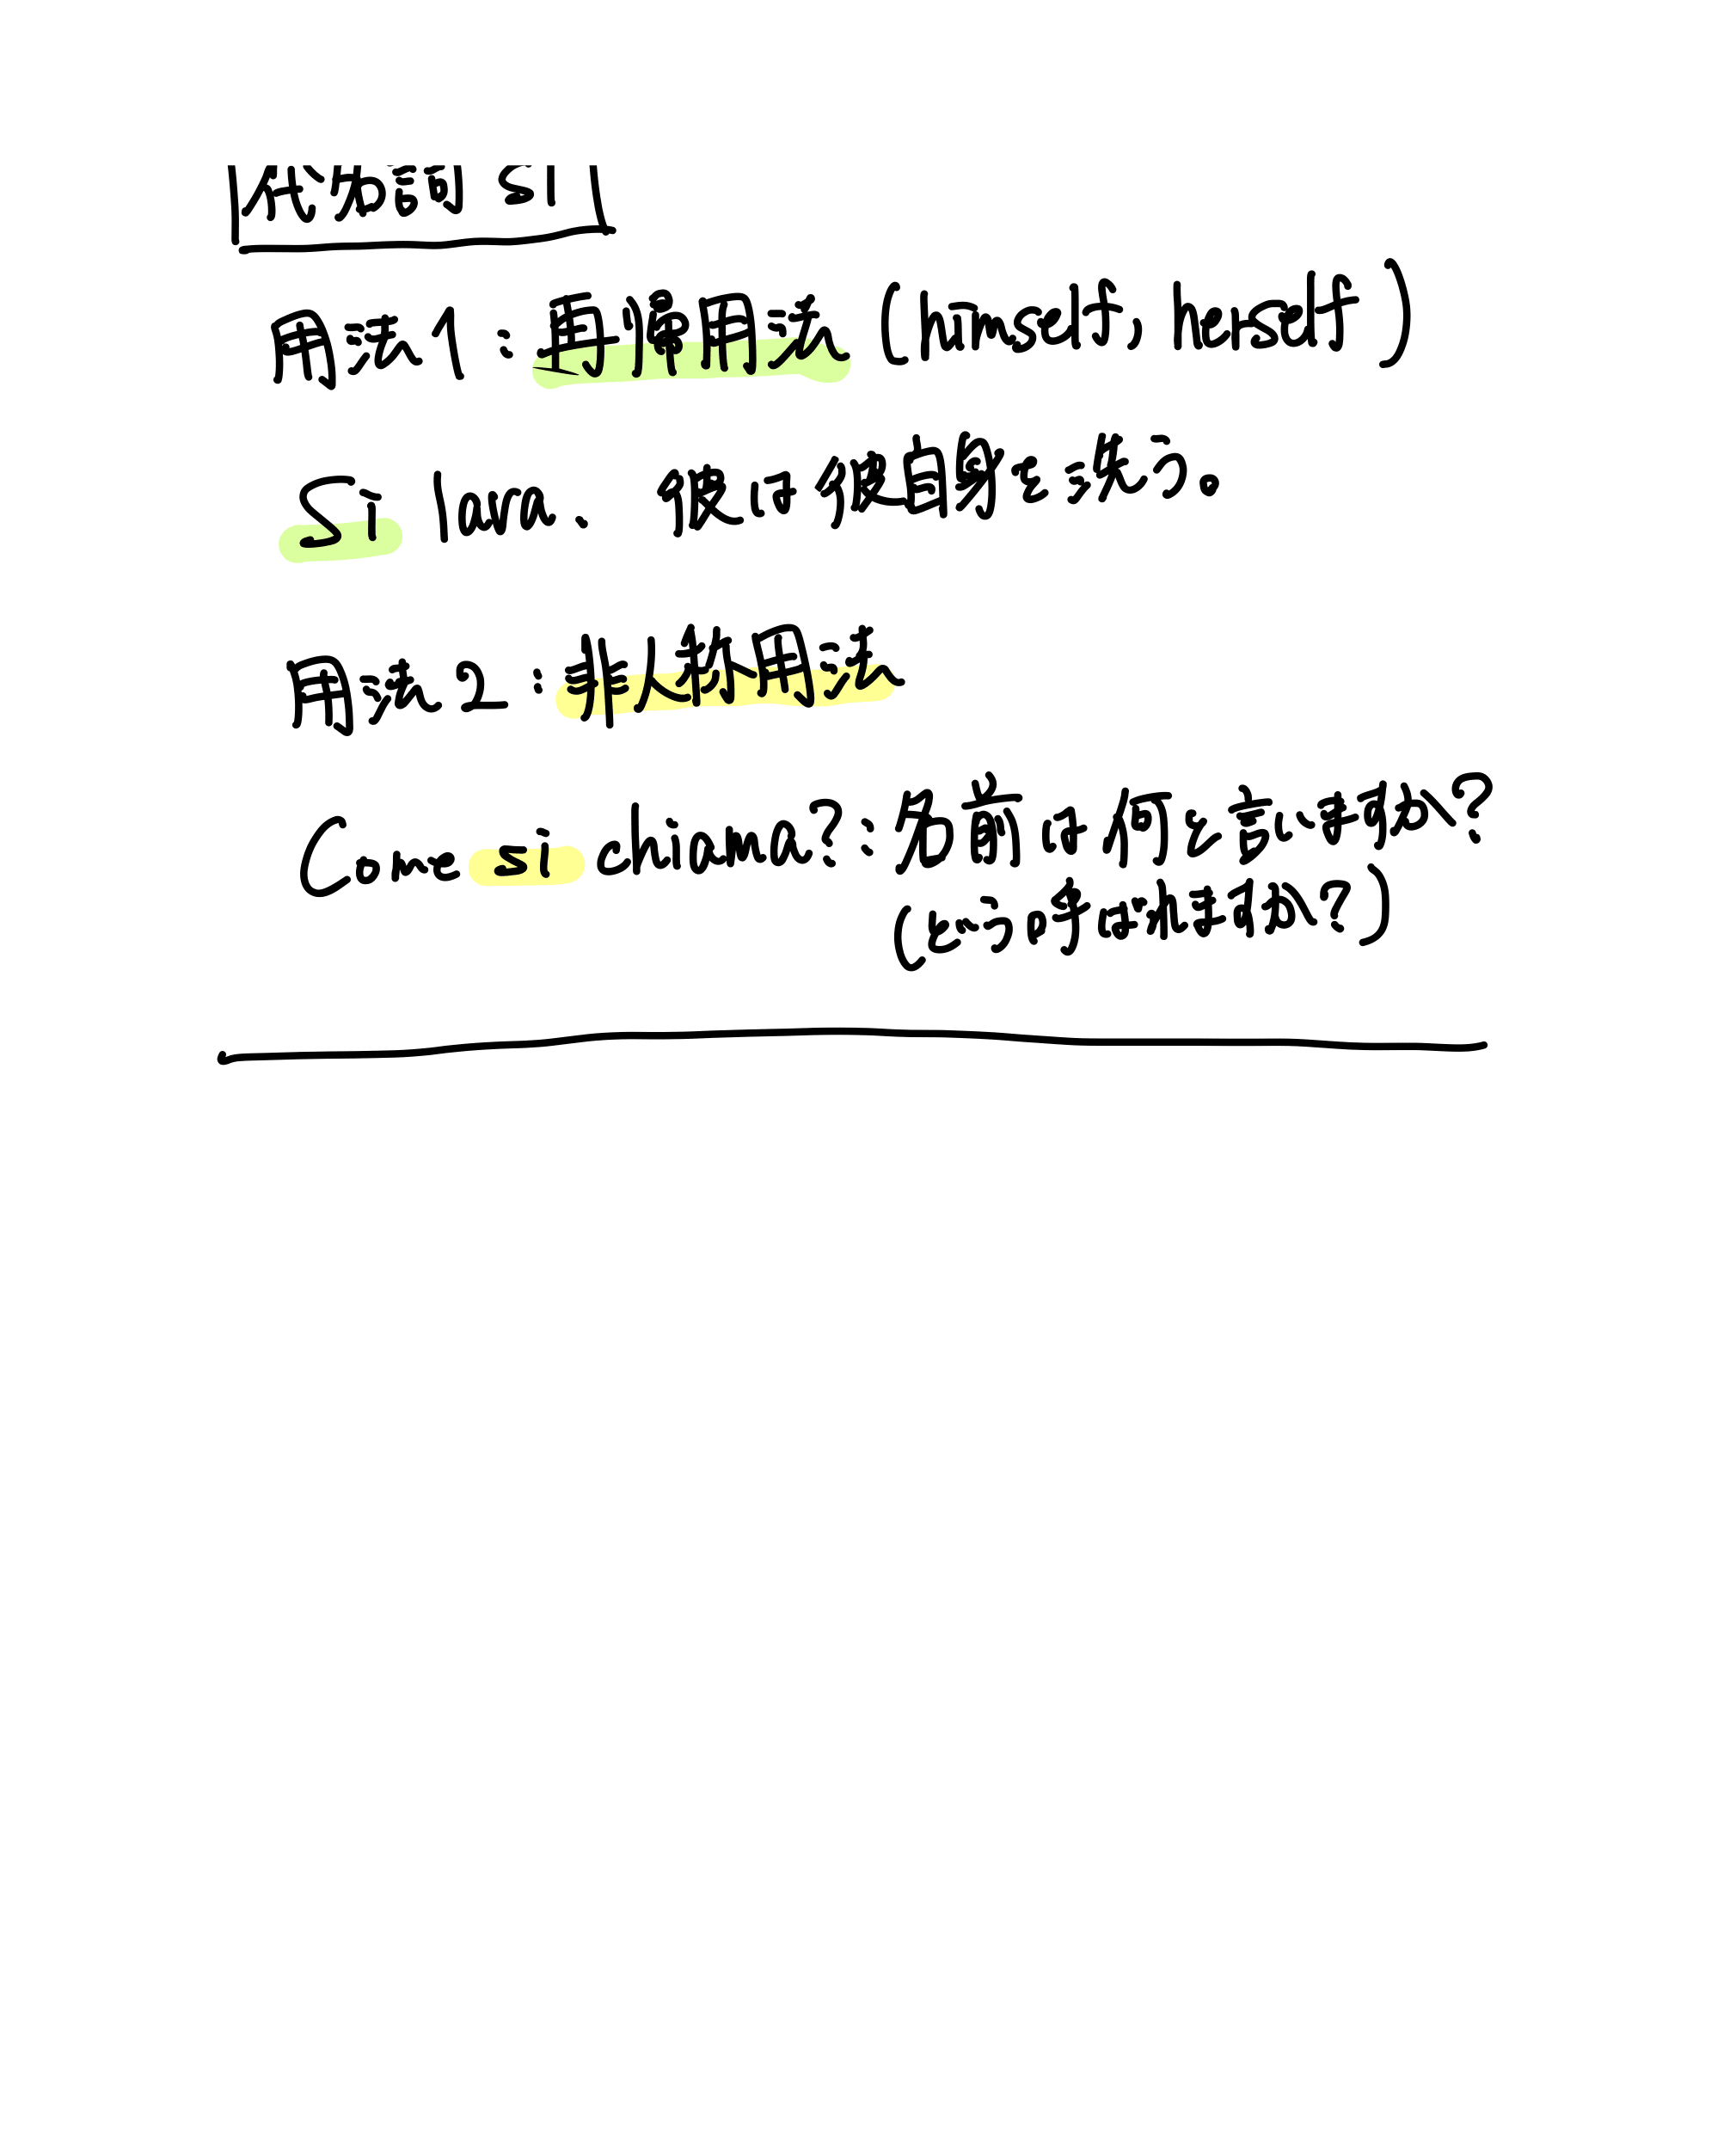 代名詞 si
用法1:再帰用法(himself, herself)
Si lava. 彼は彼自身を洗う。
用法2:非人称用法
Come si chiama?:名前は何と言いますか?
(どう呼ばれますか?)